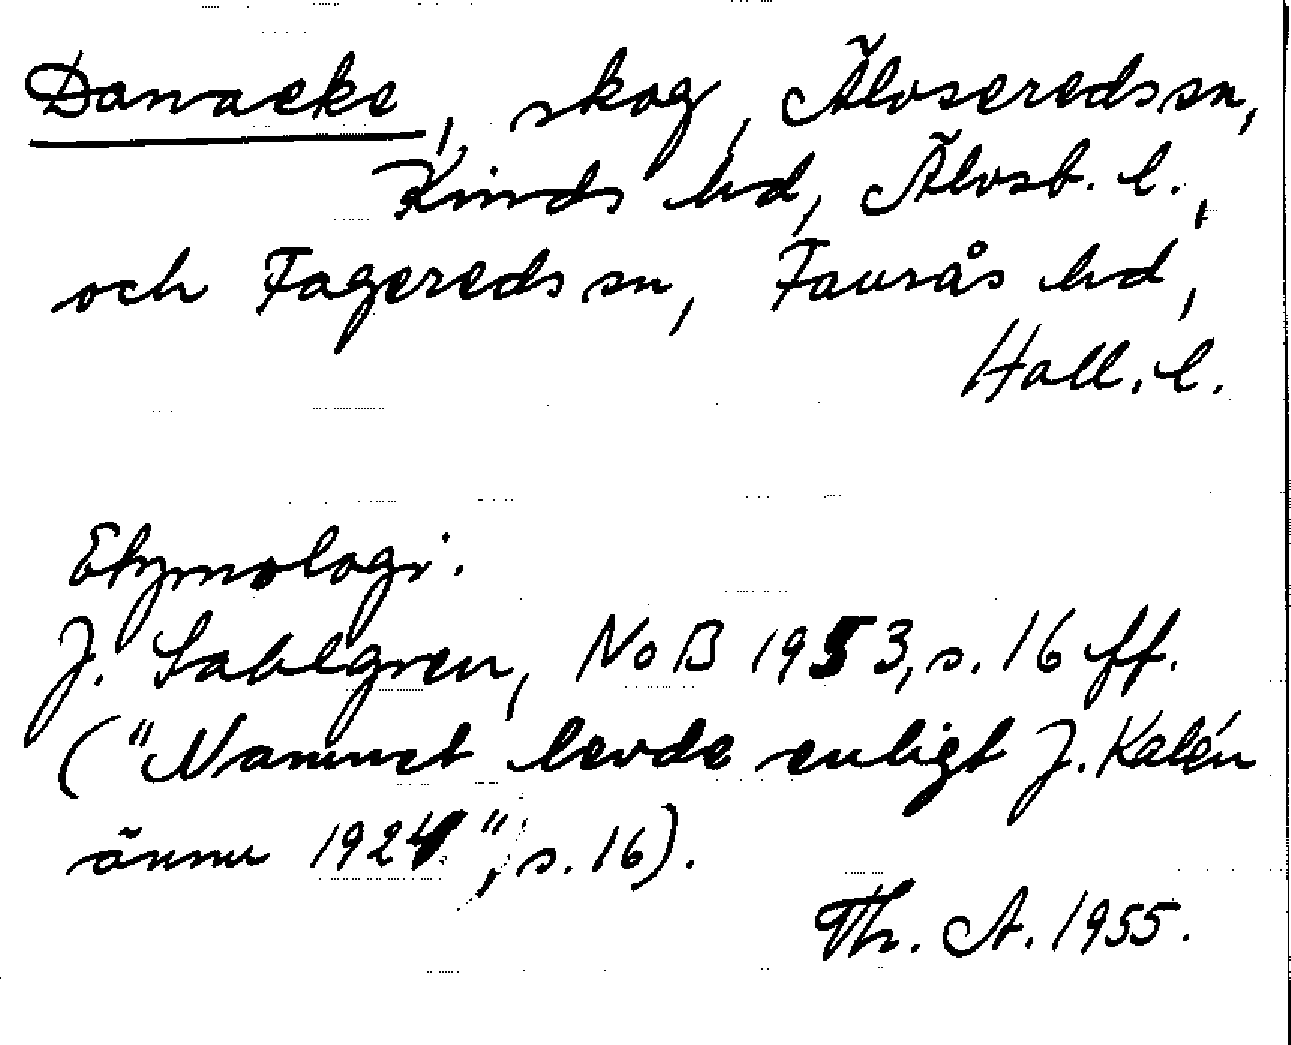 Danaeke, skog, Älvseredssn,
Kinds hd, Älvsb. l.,
och Fageredssn, Faurås hd,
Hall. l.
Etymologi:
J. Sahlgren, NoB 1953, s. 16 ff.
("Namnet levde enligt J. Kalén
ännu 1924", s. 16).
Th. A. 1955.